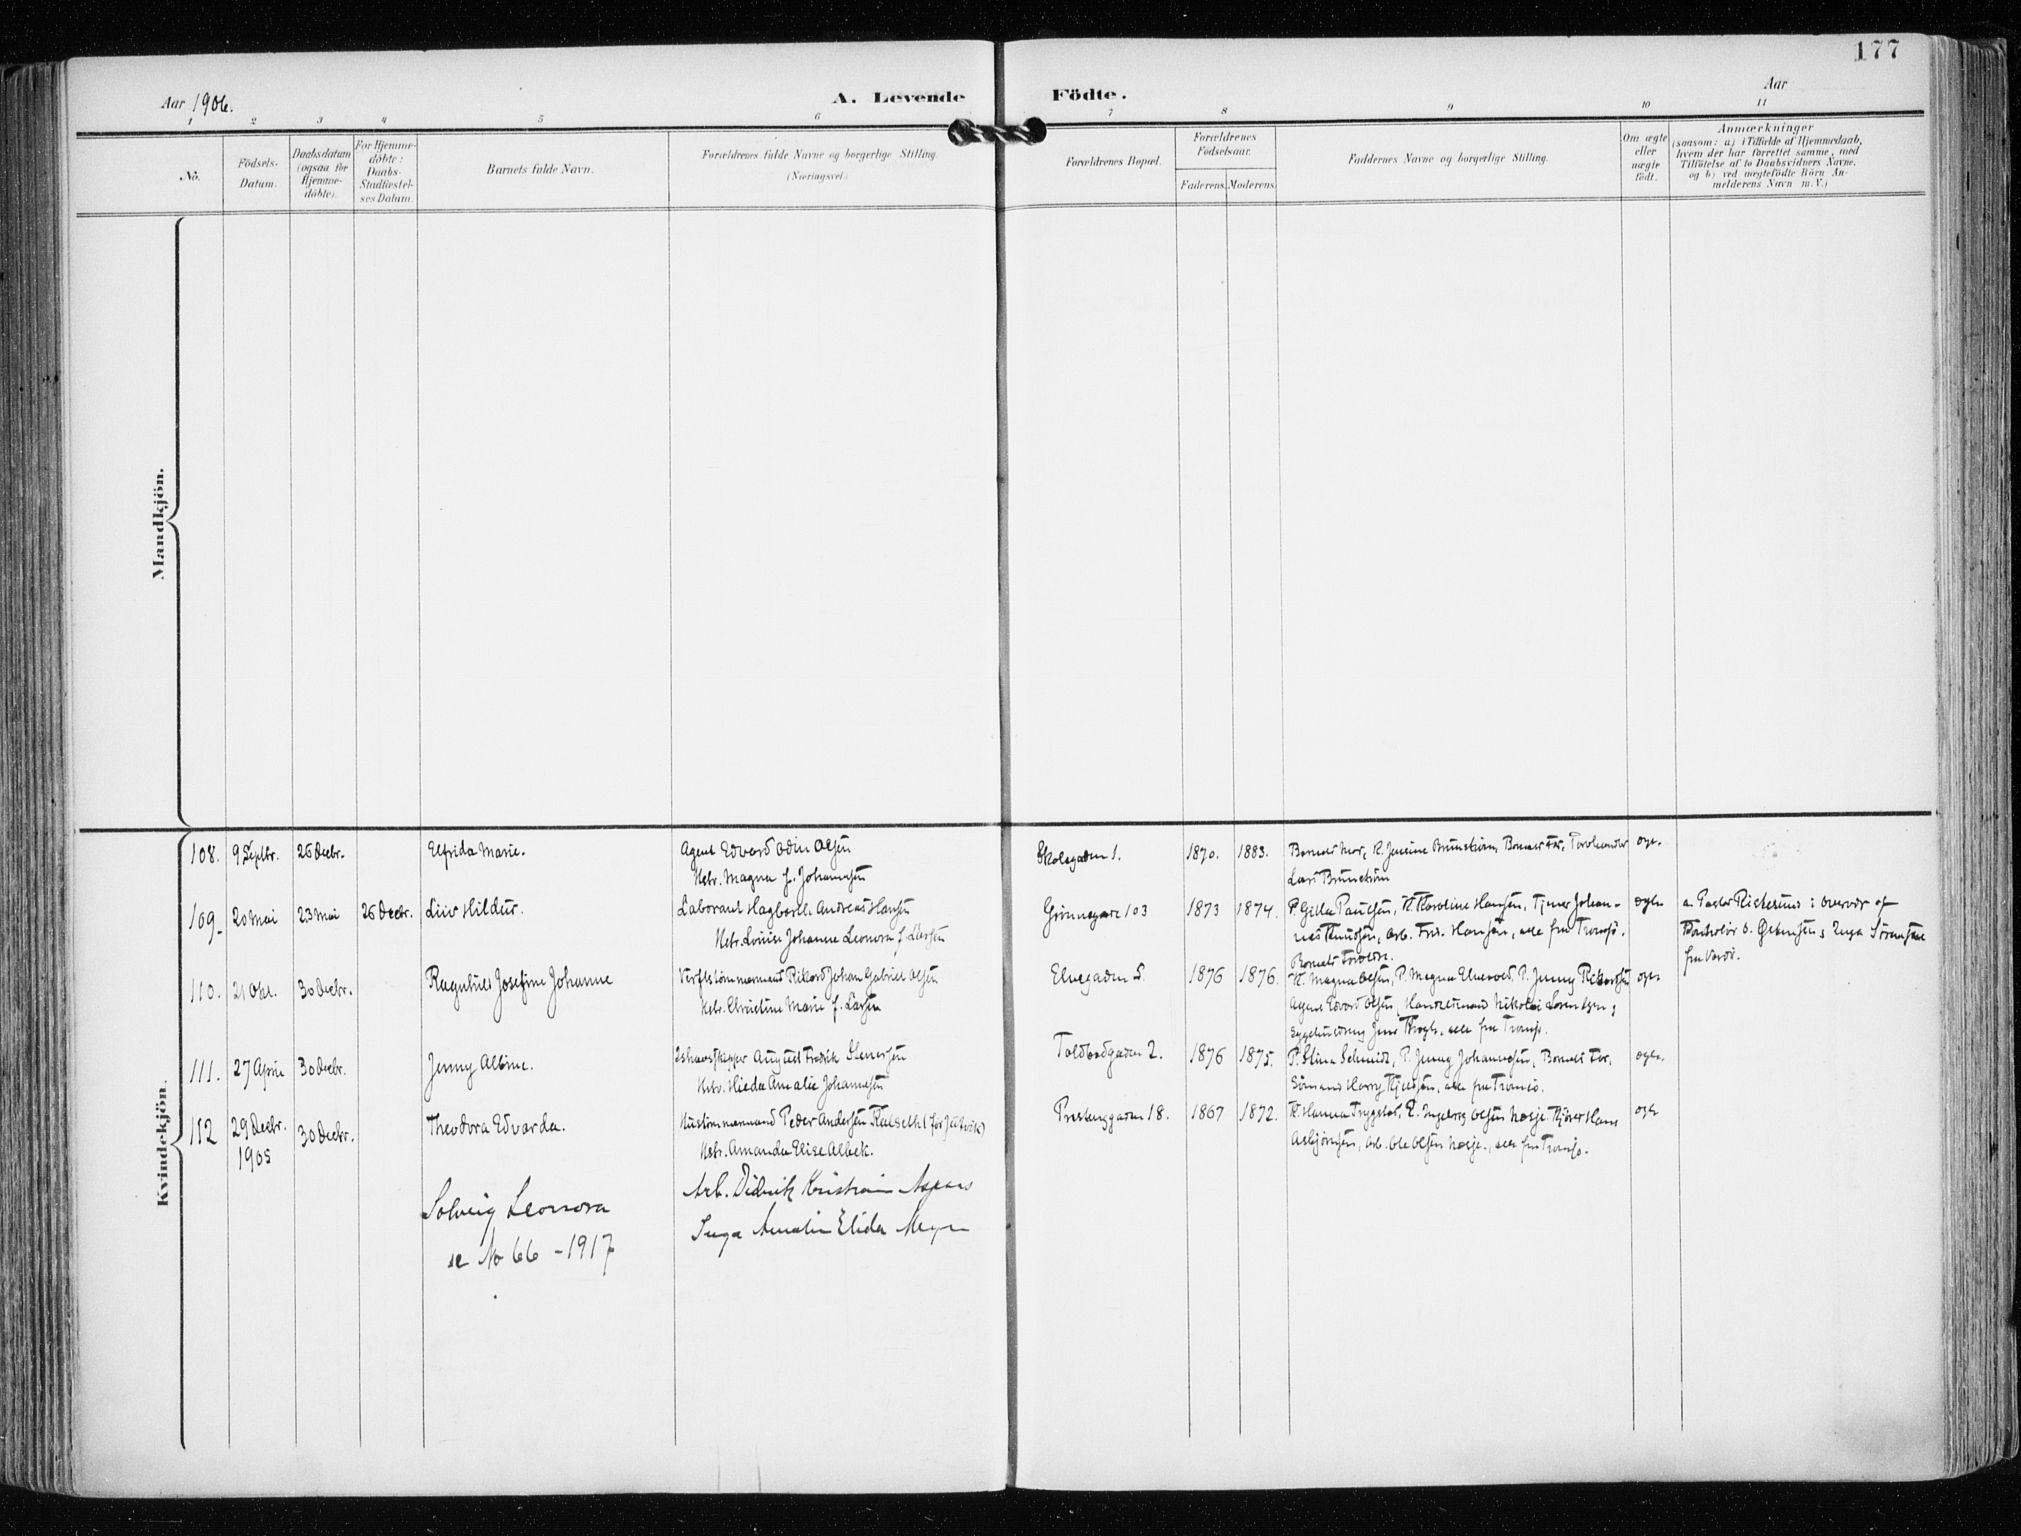 177
Aar 1906.
A. Levende Födte.
Aar
1 2 3 4 5 6 7 8 9 10 11
No.
Födsels-
Datum.
Daabsdatum
(ogsaa for
Hjemme-
döbte).
For Hjemme-
döbte:
Daabs-
Stadfæstel-
ses Datum.
Barnets fulde Navn.
Forældrenes fulde Navne og borgerlige Stilling.
(Næringsvei)
Forældrenes Bopæl.
Forældrenes
Födselsaar.
Faderens. Moderens.
Faddernes Navne og borgerlige Stilling.
Om ægte
eller
uægte
födt.
Anmærkninger
(saasom: a) i Tilfælde af Hjemmedaab,
hvem der har forrettet samme, med
Tilföielse af to Daabsvidners Navne,
og b) ved uægtefödte Börn An-
melderens Navn m. V.)
Mandkjön.
Kvindekjön.
108. 9 Septbr. 26 Decbr. Elfrida Marie. Agent Edvard Odin Olsen
Hstr. Magna f. Johannesen
Skolegaden 1. 1870. 1883. Barnets Mor, Brunström, Barnets Far,
Lars Brunström
109. 20 Mai 23 Mai 26 Decbr. Liiv Hildur. Laborant Hagbarth Andreas Hansen
Hstr. Louise Johanne Leonora f. Larsen
Grönnegade 103 1873 1874. P. Gitta Paulsen, K. Karoline Hansen, Tjener Johan-
nes Knudsen, Arb. Hansen, alle fra Tromsö.
Barnets Forældre.
ægte a. Pastor : overvær af
110. 21 Okt. 30 Decbr. Ragnhild Josefine Johanne Verftstömmermand Rikard Johan Gabriel Olsen
Hstr. Christine Marie f. Larsen
Elvegaden 5 1876 1876. K. Magna Olsen, P. Magna Elvevold, P. Jenny Rikardsen
Agent Edvard Olsen, Handelsmand Nikolai Lorentzen,
Jens alle fra Tromsö.
ægte
111. 27 April 30 Decbr. Jenny Albine. Ishavsskipper August Fredrik Stenersen
Hstr. Hilda Amalie Johannesen
Toldbodgaden 2. 1876 1875. P. Stina Schmidt, P. Jenny Johannesen, Barnets Far,
Sömand Harry alle fra Tromsö.
ægte
112 29 Decbr.
1905 30 Decbr. Theodora Edvarda. Hustömmermand Peder Andersen
Hstr. Amanda Elise Albek.
Prestenggaden 18. 1867 1872. K. Hanna Trygstad, K. Ingeborg Olsen Tjener Hans
Asbjörnsen, Arb. Ole Olsen alle fra Tromsö.
ægte
Solveig Leonora
se No 66 - 1917
Arb. Didrik Kristian
Inga Amalie Elida Meyer